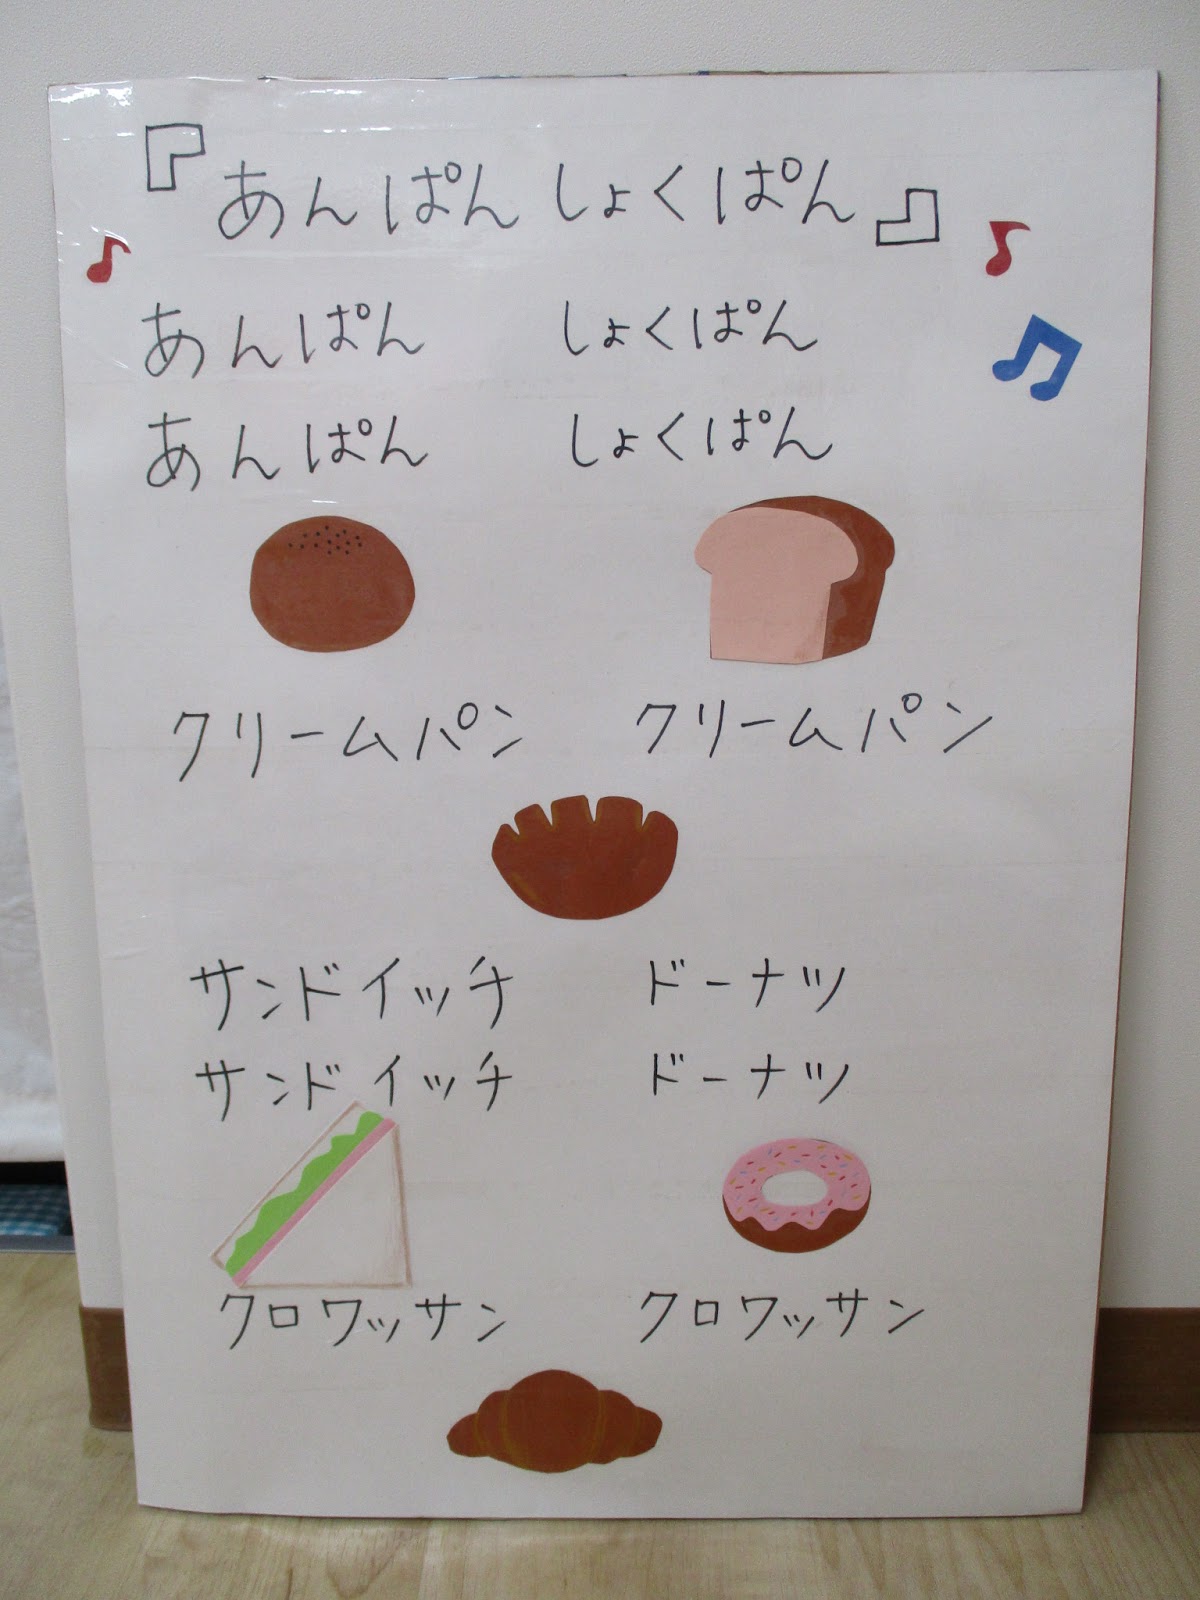 『あんぱんしょくぱん』
あんぱん しょくぱん
あんぱん しょくぱん
クリームパン クリームパン
サンドイッチ ドーナツ
サンドイッチ ドーナツ
クロワッサン クロワッサン